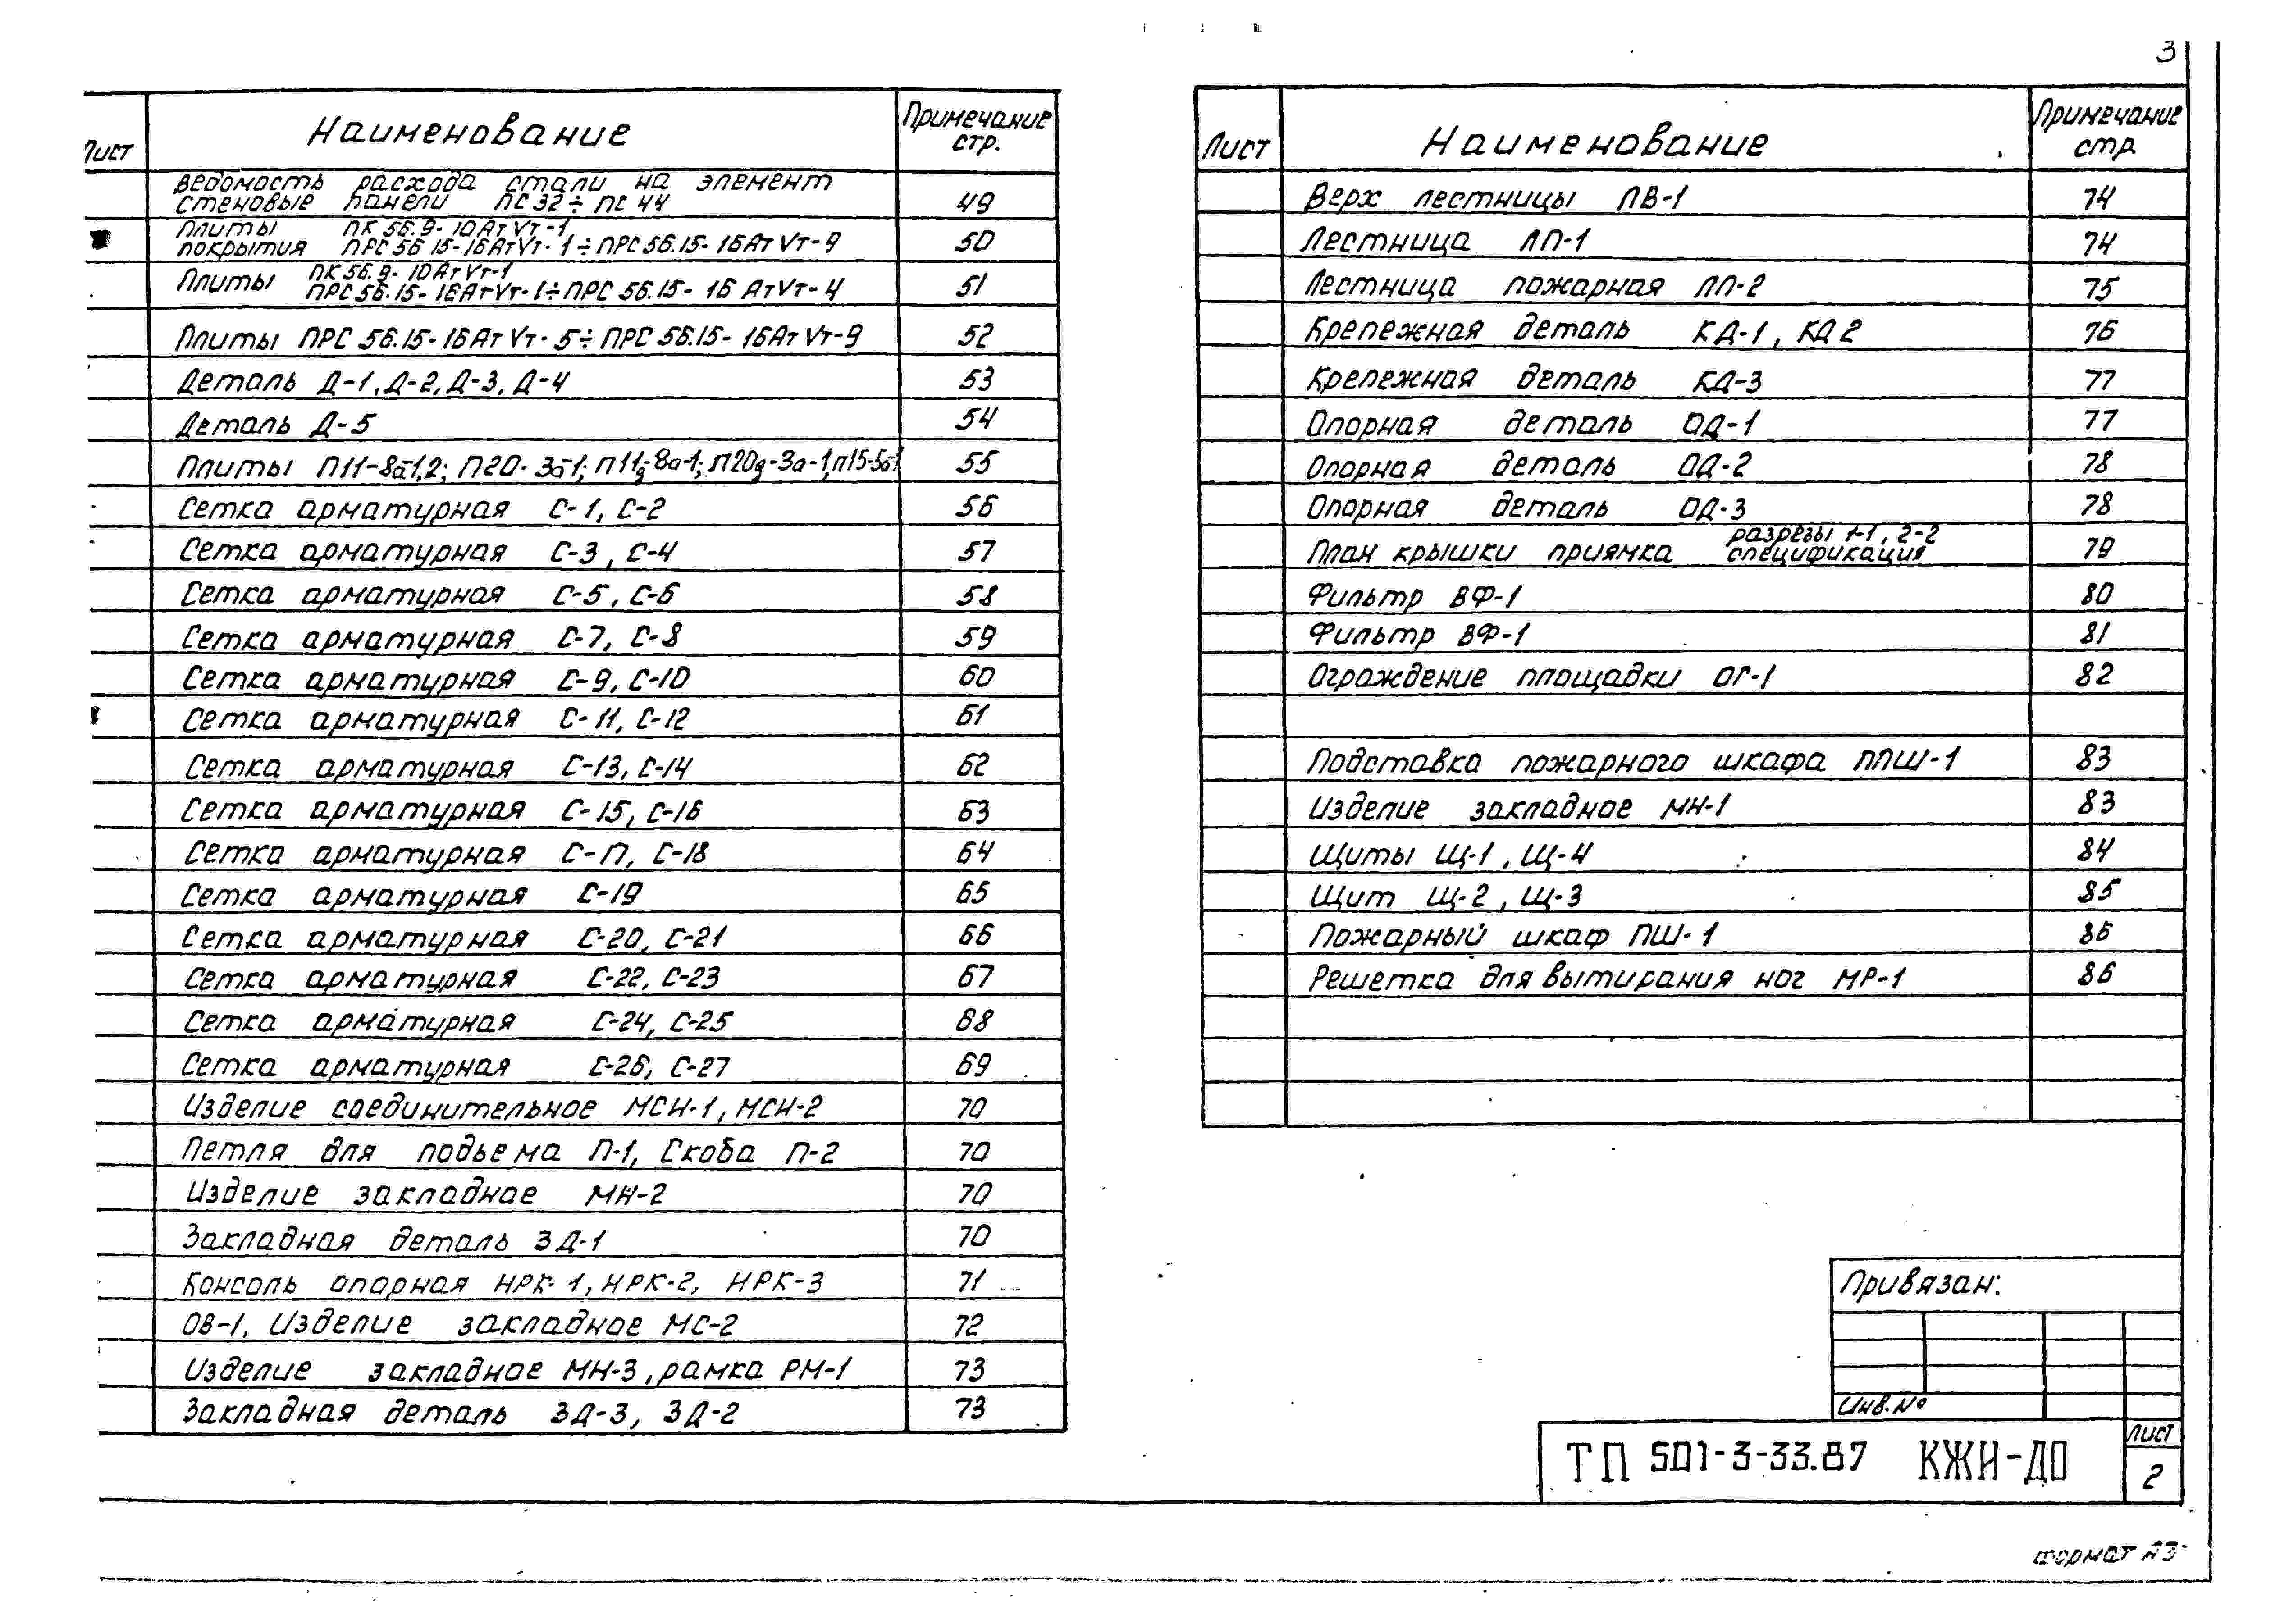 3
Лист Наименование Примечание стр.
Ведомость расхода стали на элемент
стеновые панели ПС 32 ÷ ПС 44 49
Плиты ПК 56.9-10АтVт-1
покрытия ПРС 56 15-16АтVт-1÷ПРС 56.15-16АтVт-9 50
Плиты ПК 56.9-10АтVт-1
ПРС 56.15-16АтVт-1÷ПРС 56.15-16АтVт-4 51
Плиты ПРС 56.15-16АтVт-5÷ПРС 56.15-16АтVт-9 52
Деталь Д-1, Д-2, Д-3, Д-4 53
Деталь Д-5 54
Плиты П11-8а-1,2; П20-3а-1; П11д-8а-1; П20д-3а-1, П15-5а-1 55
Сетка арматурная С-1, С-2 56
Сетка арматурная С-3, С-4 57
Сетка арматурная С-5, С-6 58
Сетка арматурная С-7, С-8 59
Сетка арматурная С-9, С-10 60
Сетка арматурная С-11, С-12 61
Сетка арматурная С-13, С-14 62
Сетка арматурная С-15, С-16 63
Сетка арматурная С-17, С-18 64
Сетка арматурная С-19 65
Сетка арматурная С-20, С-21 66
Сетка арматурная С-22, С-23 67
Сетка арматурная С-24, С-25 68
Сетка арматурная С-26, С-27 69
Изделие соединительное МСН-1, МСН-2 70
Петля для подьема П-1, Скоба П-2 70
Изделие закладное МН-2 70
Закладная деталь ЗД-1 70
Консоль опорная НРК-1, НРК-2, НРК-3 71
ОВ-1, Изделие закладное МС-2 72
Изделие закладное МН-3, рамка РМ-1 73
Закладная деталь ЗД-3, ЗД-2 73
Лист Наименование Примечание стр.
Верх лестницы ЛВ-1 74
Лестница ЛП-1 74
Лестница пожарная ЛП-2 75
Крепежная деталь КД-1, КД 2 76
Крепежная деталь КД-3 77
Опорная деталь ОД-1 77
Опорная деталь ОД-2 78
Опорная деталь ОД-3 78
План крышки приямка разрезы 1-1, 2-2
спецификация 79
Фильтр ВФ-1 80
Фильтр ВФ-1 81
Ограждение площадки ОГ-1 82
Подставка пожарного шкафа ППШ-1 83
Изделие закладное МН-1 83
Щиты Щ-1, Щ-4 84
Щит Щ-2, Щ-3 85
Пожарный шкаф ПШ-1 86
Решетка для вытирания ног МР-1 86
Привязан:
Инв.№
ТП 501-3-33.87 КЖИ-ДО
Лист
2
Формат А3